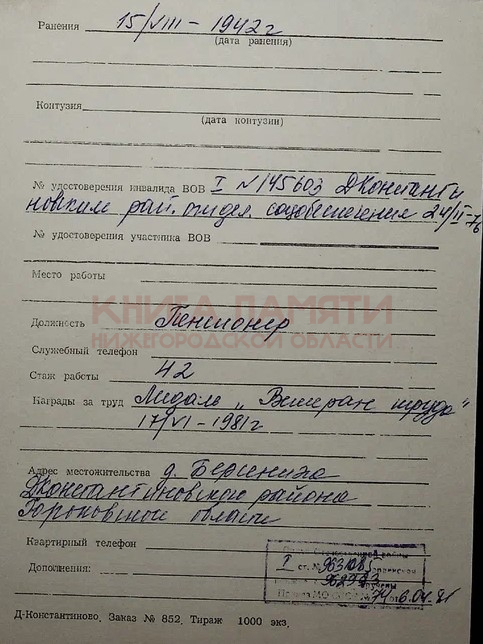 Ранения 15/VIII – 1942 г
(дата ранения)
Контузия
(дата контузии)
№ удостоверения инвалида ВОВ I № 145603 ДКонстанти
новским рай. отдел. соцобеспечения 24/II-76
№ удостоверения участника ВОВ
Место работы
КНИГА ПАМЯТИ
Должность Пенсионер
НИЖЕГОРОДСКОЙ ОБЛАСТИ
Служебный телефон
Стаж работы 42
Награды за труд Медаль „Ветеран труда"
17/VI – 1981 г
Адрес местожительства д.
ДКонстантиновского района
Горьковской области
Квартирный телефон
Дополнения:
I ст. №
Д-Константиново. Заказ № 852. Тираж 1000 экз.